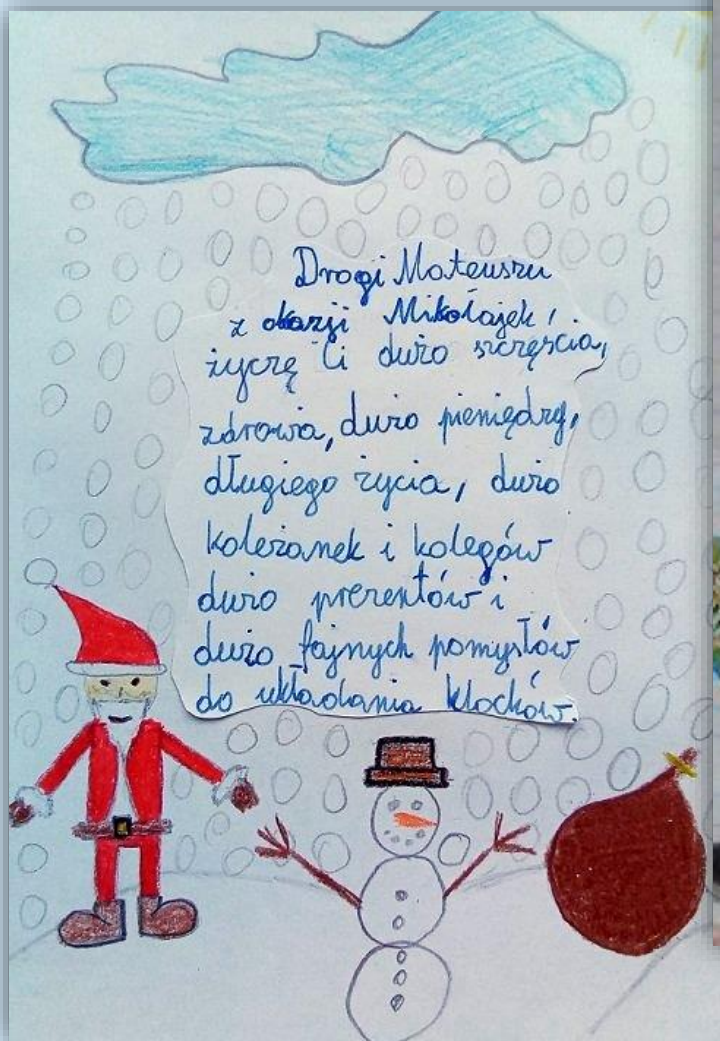 Drogi Mateuszu
z okazji Mikołajek,
życzę Ci dużo szczęścia,
zdrowia, dużo pieniędzy,
długiego życia, dużo
koleżanek i kolegów
dużo prezentów i
dużo fajnych pomysłów
do układania klocków.